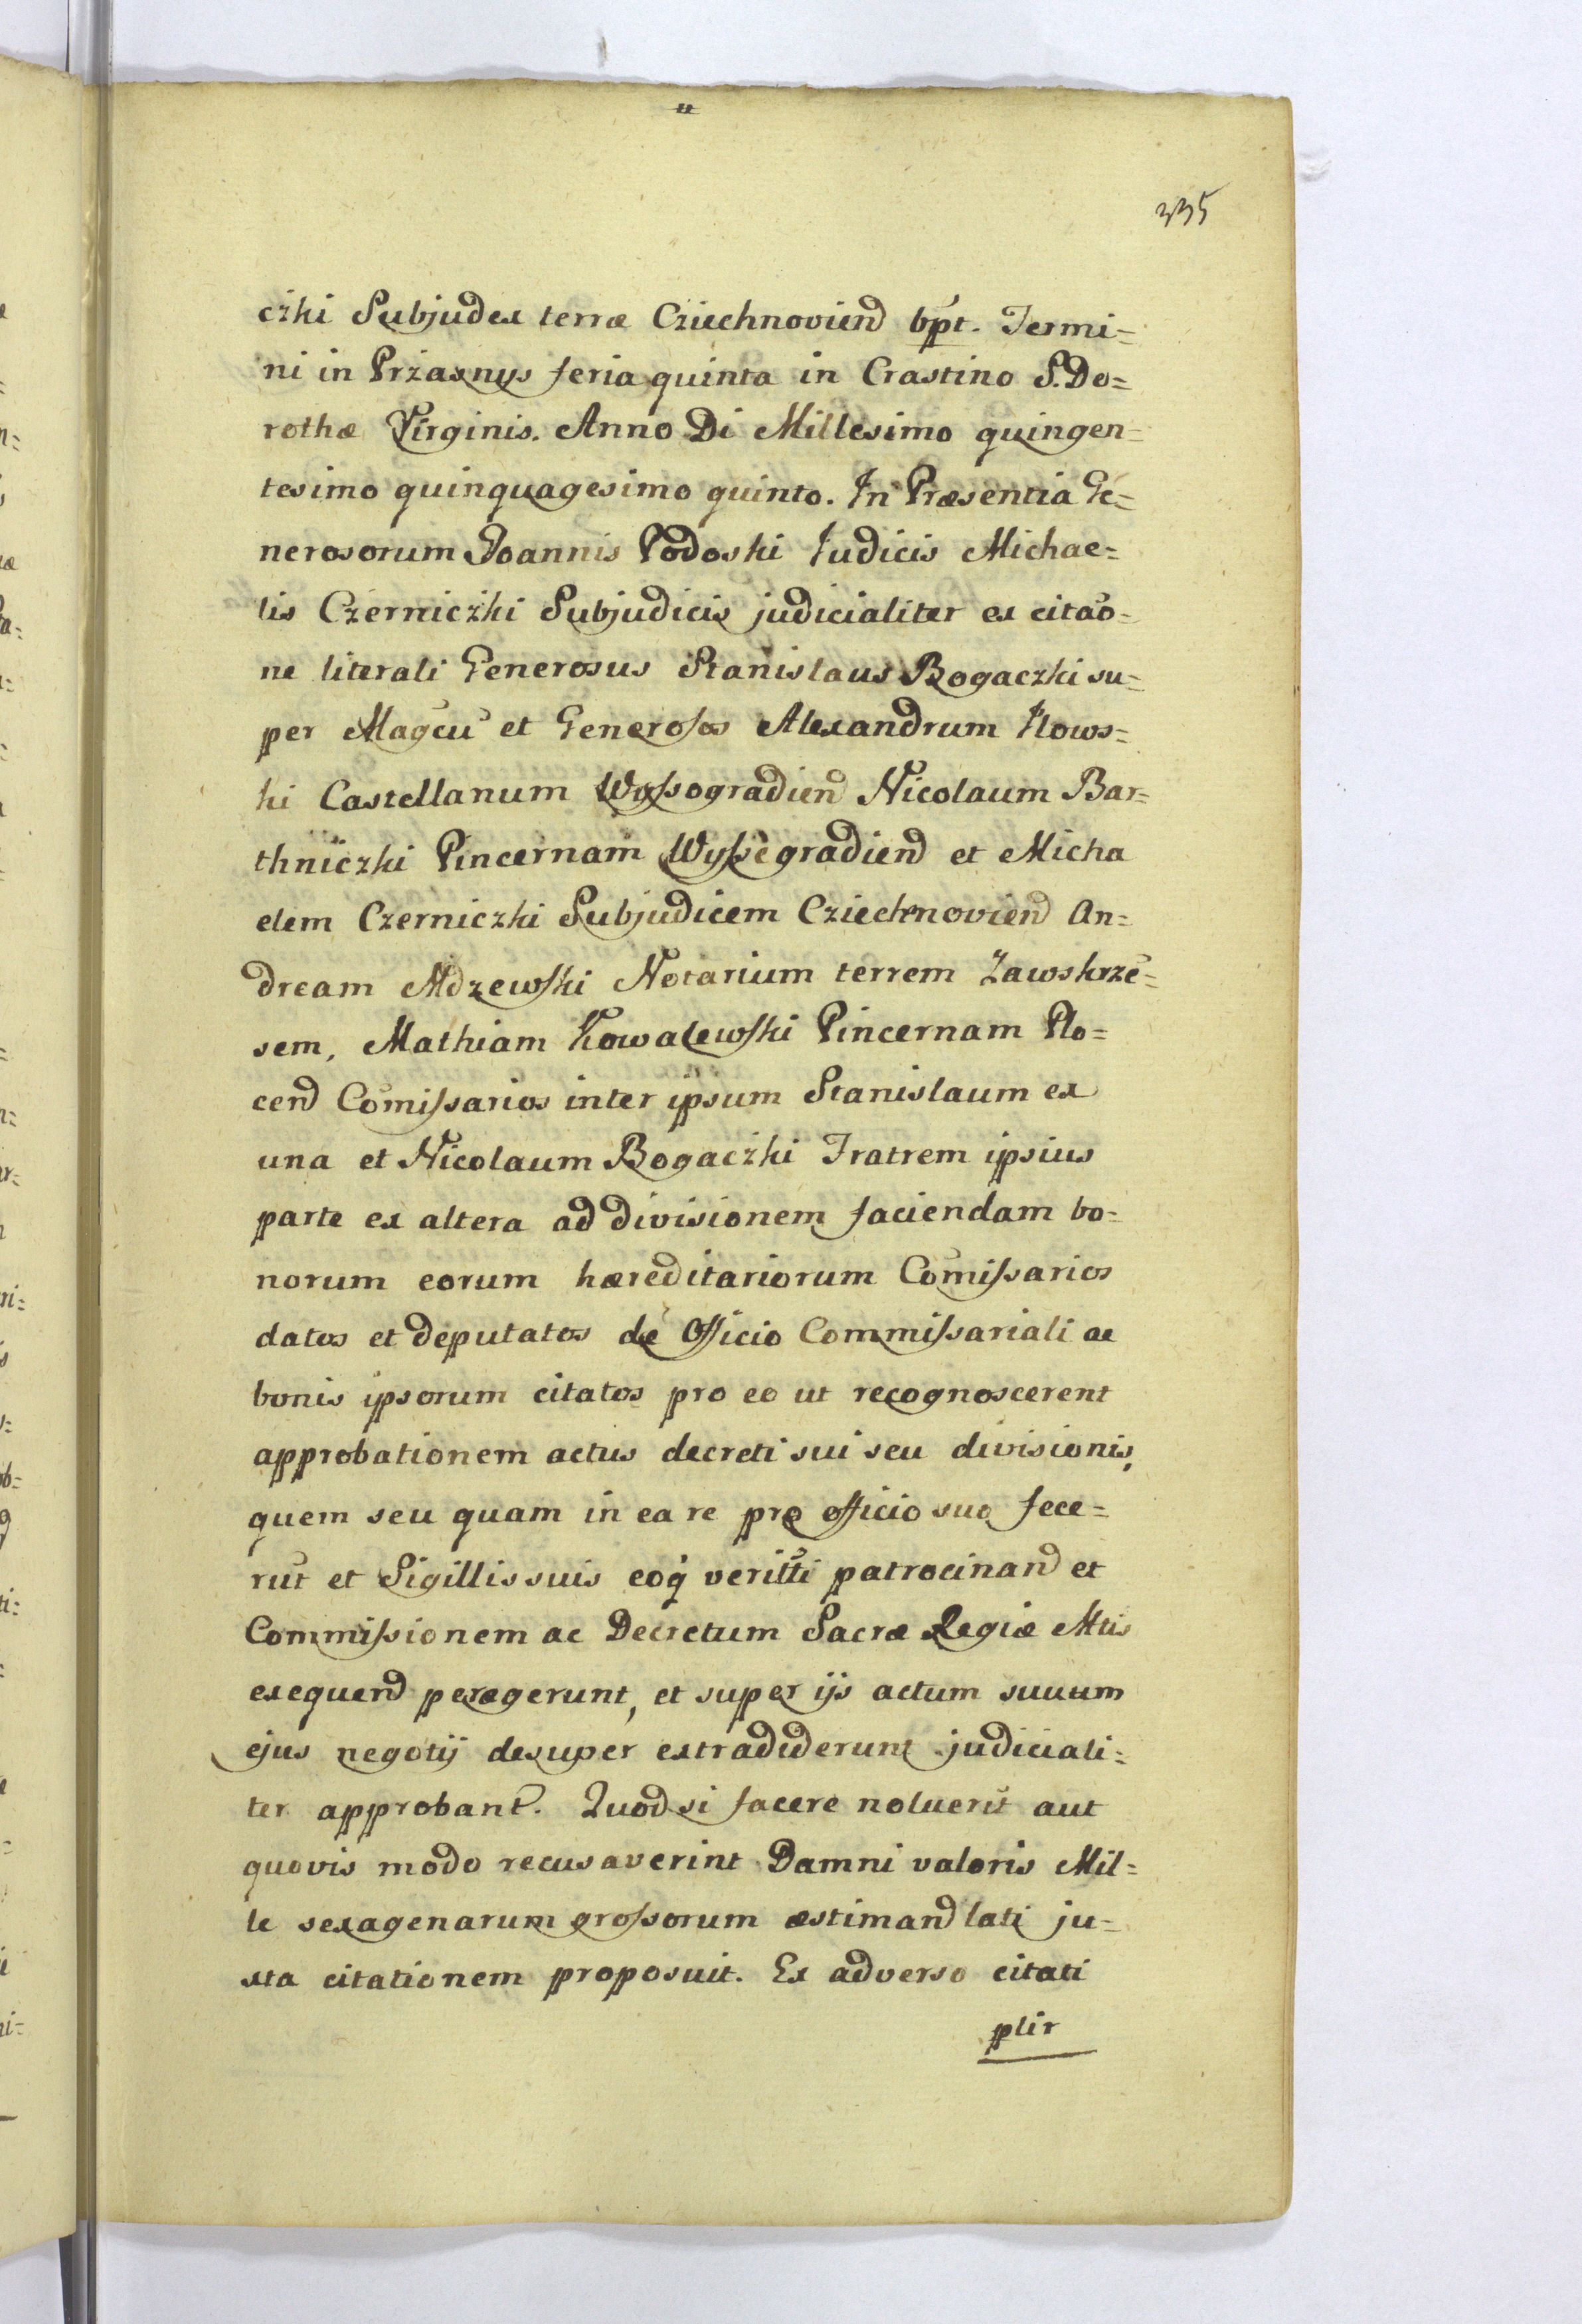 335
czki Subjudex terræ Cziechnovień bpt. Termi=
ni in Przasnys feria quinta in Crastino S. Do=
rothæ Virginis. Anno Di Millesimo quingen=
tesimo quinquagesimo quinto. In Præsentia Ge=
nerosorum Joannis Podoski Judicis Michae=
lis Czerniczki Subjudicis judicialiter ex citao=
ne literali Generosus Stanislaus Bogaczki su=
per Magcu et Generosos Alexandrum Ilows=
ki Castellanum Wyssogradien Nicolaum Bar=
thniczki Pincernam Wyssegradien et Micha
elem Czerniczki Subjudicem Cziechnovien An=
dream Mdzewski Notarium terrem Zawskrze=
sem, Mathiam Kowalewski Pincernam Plo=
cen Comissarios inter ipsum Stanislaum ex
una et Nicolaum Bogaczki Fratrem ipsius
parte ex altera ad divisionem faciendam bo=
norum eorum hæreditariorum Comissarios
datos et deputatos de Officio Commissariali ac
bonis ipsorum citatos pro eo ut recognoscerent
approbationem actus decreti sui seu divisionis,
quem seu quam in ea re pro officio suo fece=
rut et Sigillis suis eoq veritti patrocinand et
Commissionem ac Decretum Sacræ Regiæ Mtis
exequend peregerunt, et super ijs actum suuum
ejus negotij desuper extradiderunt judiciali=
ter approbant. Quod si facere noluerit aut
quovis modo recusaverint Damni valoris Mil=
le sexagenarum grossorum æstimand lati ju=
xta citationem proposuit. Ex adverso citati
plir